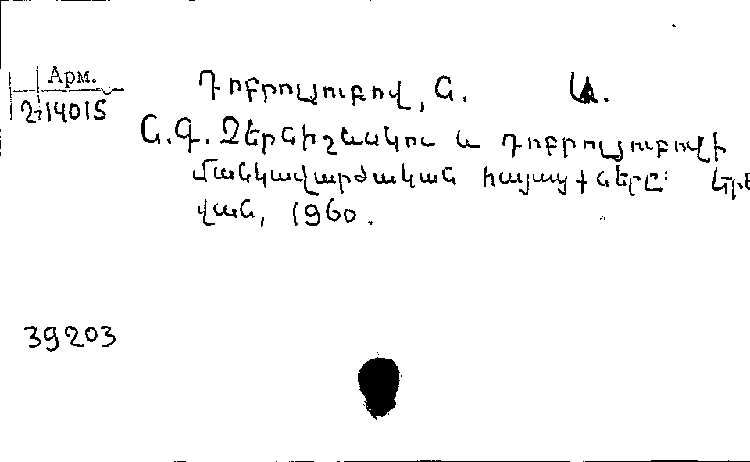 Арм.
2:14015
Դոբրոլյուբով, Ն. Ա.
Ն. Գ. Չերնիշևսկու և Դոբրոլյուբովի
մանկավարժական հայացքները: Երե
վան, 1960.
39203